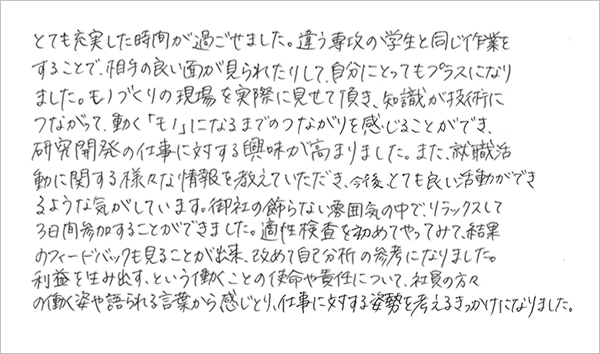 とても充実した時間が過ごせました。違う専攻の学生と同じ作業を
することで、相手の良い面が見られたりして、自分にとってもプラスになり
ました。モノづくりの現場を実際に見せて頂き、知識が技術に
つながって、動く「モノ」になるまでのつながりを感じることができ、
研究開発の仕事に対する興味が高まりました。また、就職活
動に関する様々なり情報を教えていただき、今後、とても良い活動ができ
るような気がしています。御社の飾らない雰囲気の中で、リラックスして
3日間参加することができました。適性検査を初めてやってみて、結果
のフィードバックも見ることが出来、改めて自己分析の参考になりました。
利益を生み出す、という働くことの使命や責任について、社員の方々
の働く姿や語られる言葉から感じとり、仕事に対する姿勢を考えるきっかけになりました。